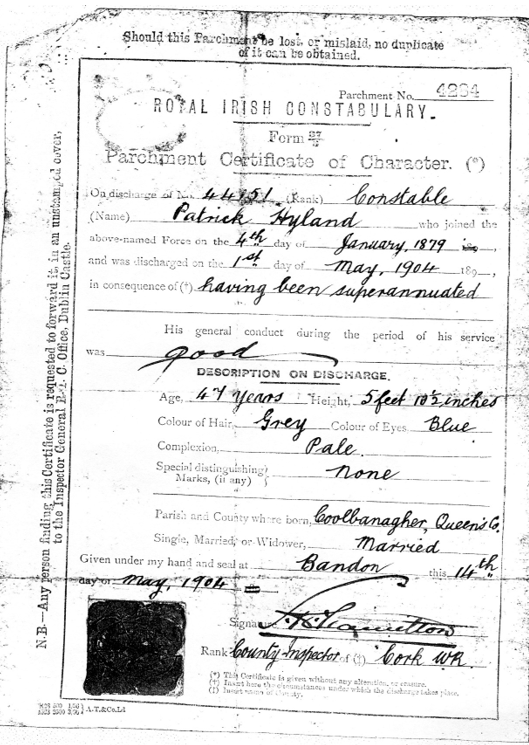 Should this Parchment be lost or mislaid, no duplicate
of it can be obtained.
Parchment No. 4234
ROYAL IRISH CONSTABULARY.
Form
Parchment Certificate of Character. (*)
On discharge of No. 44451. (Rank) Constable
(Name) Patrick Hyland who joined the
above-named Force on the 4th day of January, 1879
and was discharged on the 1st day of May, 1904 189
in consequence of (†) having been superannuated
His general conduct during the period of his service
was good
DESCRIPTION ON DISCHARGE.
Age, 47 Years Height, 5 feet 10½ inches
Colour of Hair, Grey Colour of Eyes Blue
Complexion, Pale.
Special distinguishing
Marks, (if any) None
Parish and County where born, Coolbanagher, Queen's Co.
Single, Married, or Widower, Married
Given under my hand and seal at Bandon this 14th
day of May, 1904
Signa Hamilton
Rank County Inspector of (‡) Cork W.R.
(*) This Certificate is given without any alteration, or erasure.
(†) Insert here the circumstances under which the discharge takes place.
(‡) Insert name of county.
A.T.&Co.Ld
N.B.—Any person finding this Certificate is requested to forward it, in an unstamped cover,
to the Inspector General R.I.C. Office, Dublin Castle.